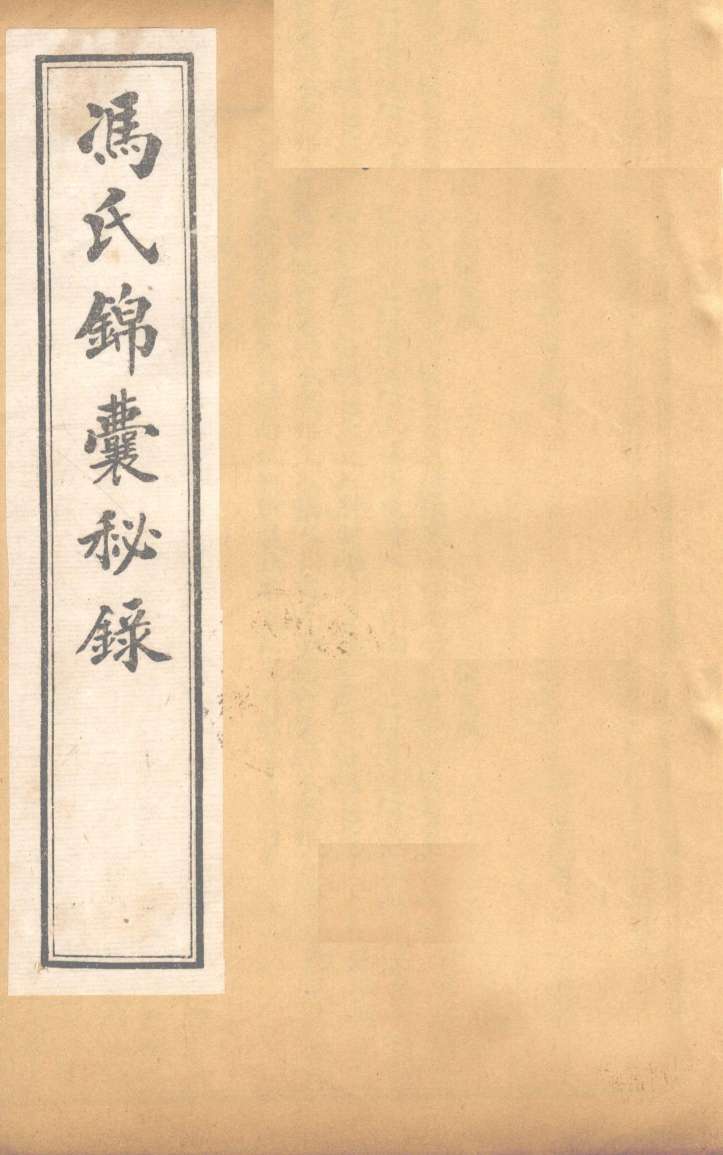 馮氏錦囊秘錄